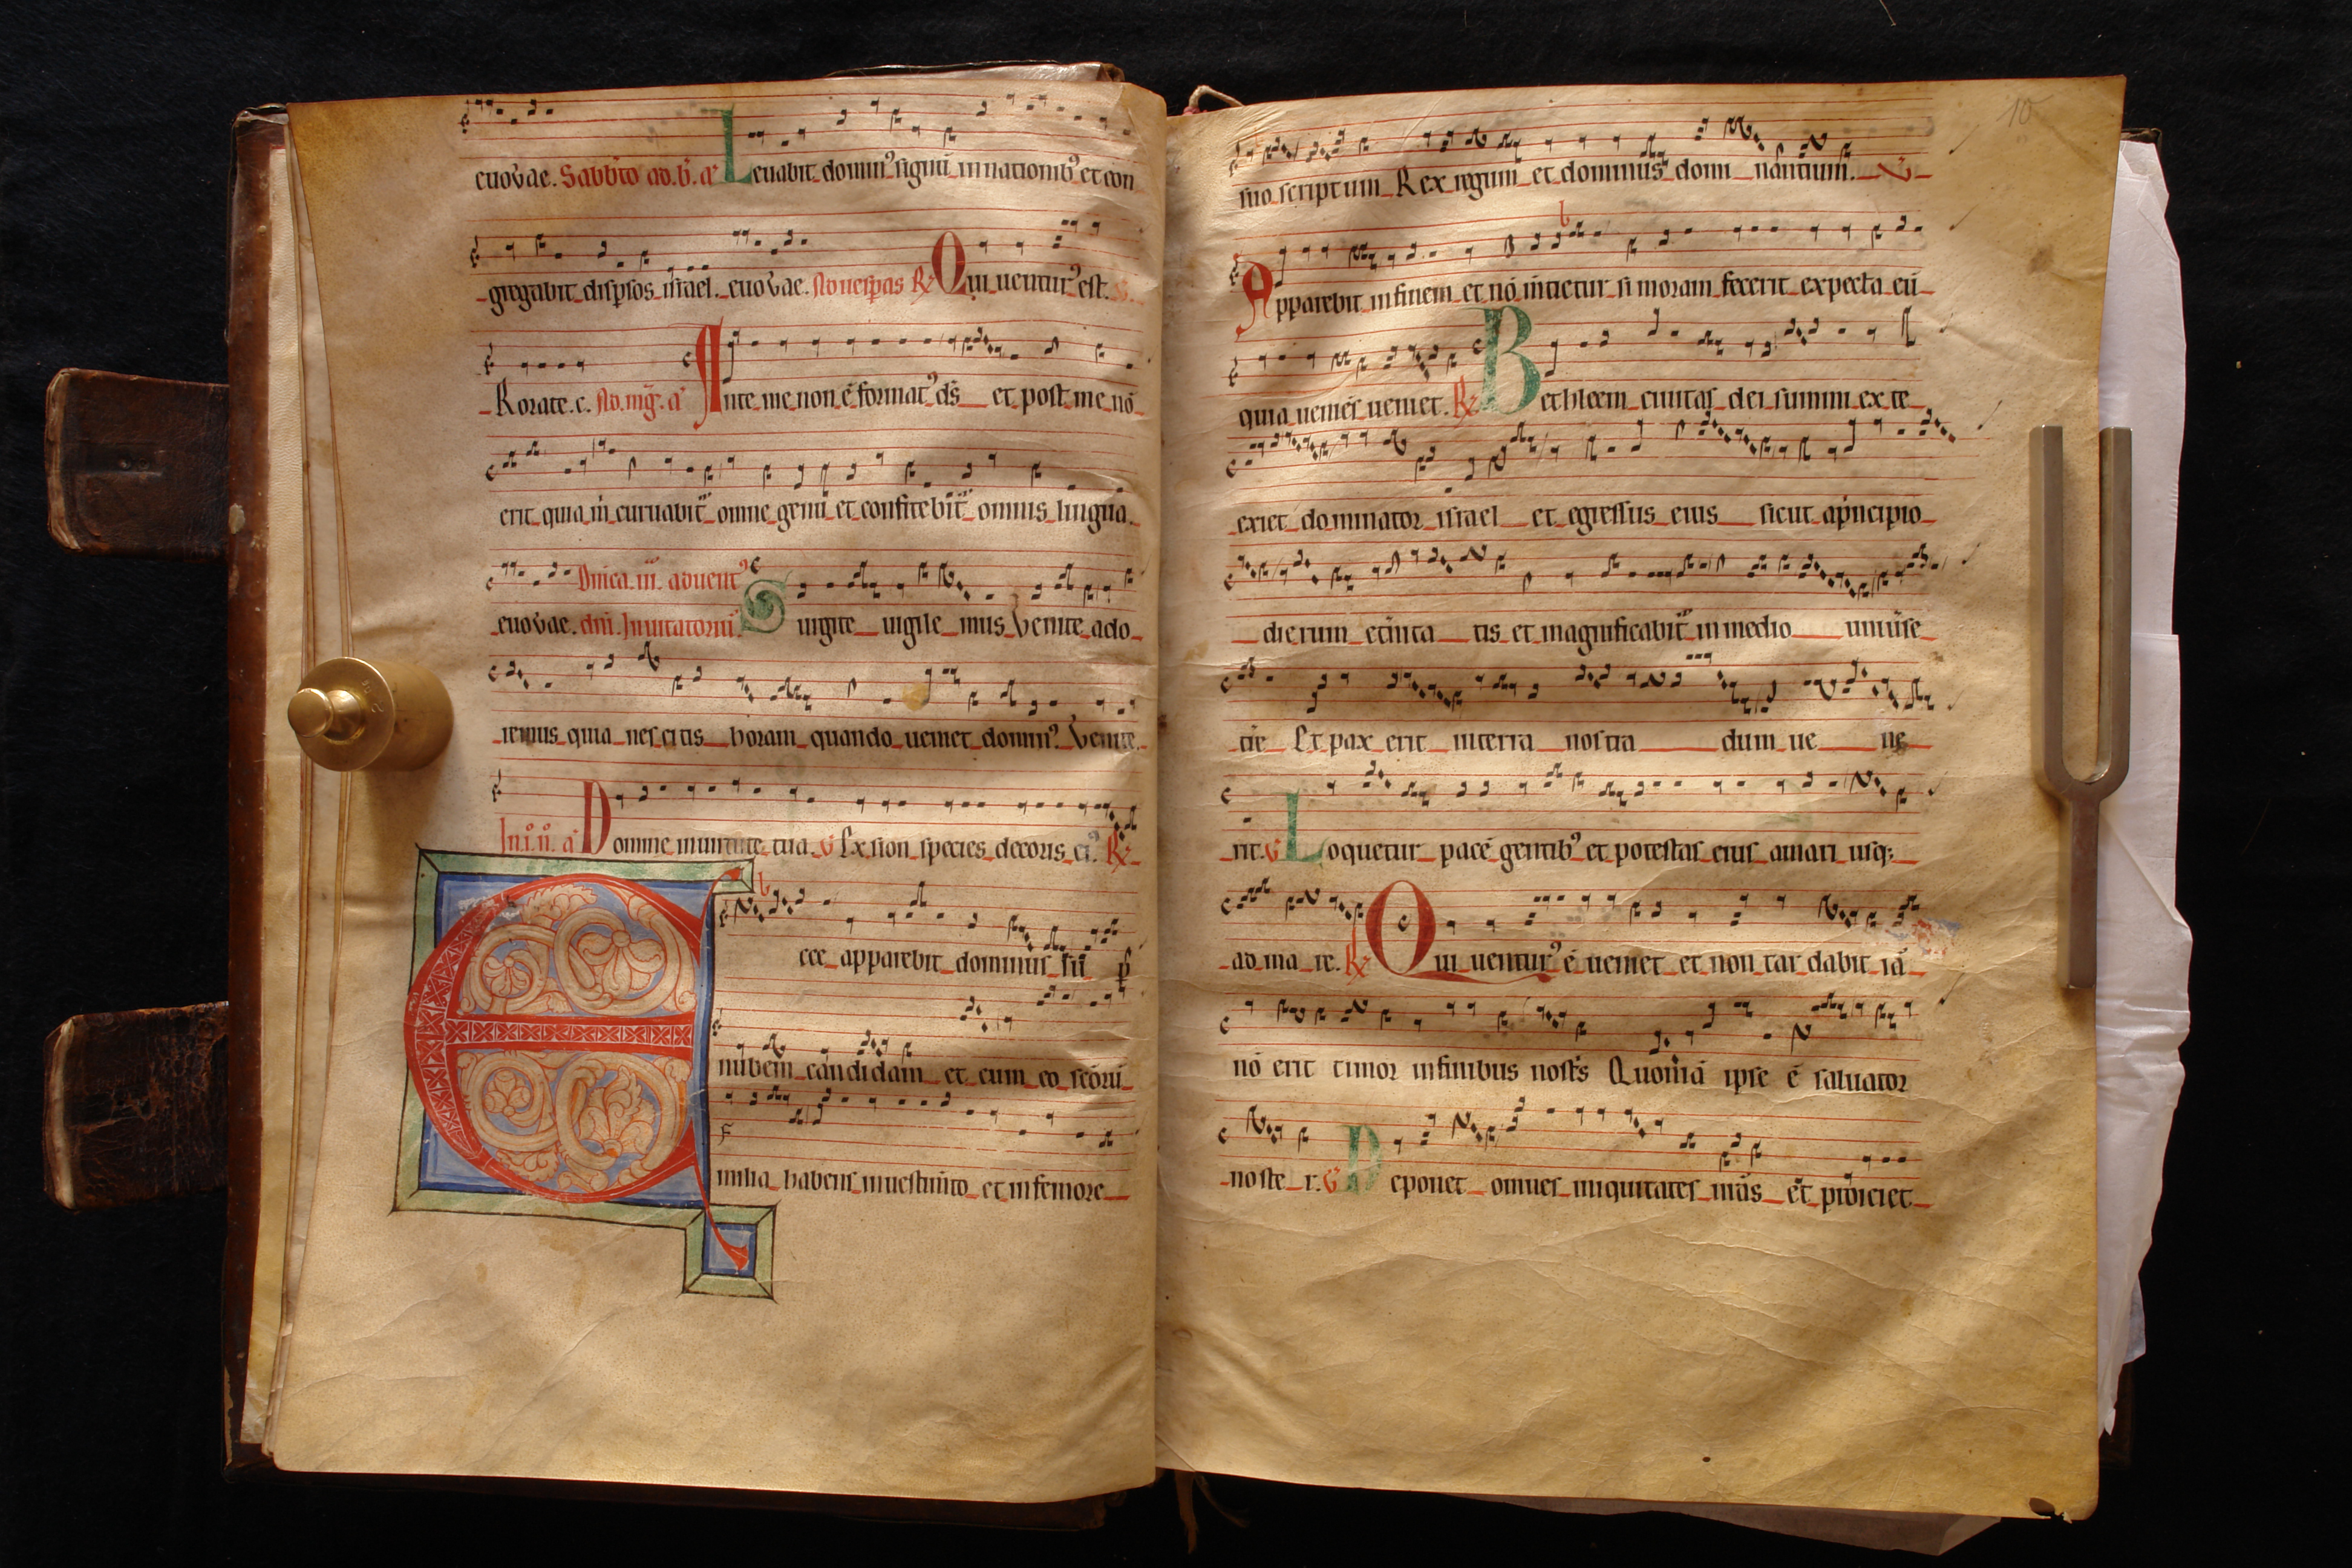 euouae. Sabb̄to ad.b̄.a᷑ Leuabit dominꝰ signū in nationibꝰ et con
gregabit dispsos israel. euouae. Ad uesp̄as R̷ Qui uenturꝰ est.
Rorate.c. Ad.mḡ.a᷑ Ante me non ē formatꝰ d̄s et post me nō
erit quia m̄ curuabit᷑ omne genu et confitebit᷑ omnis lingua.
euouae. Dn̄ica.iii. aduentꝰ
dn̄i. Inuitatoriū. Surgite uigile mus Venite ado
remus quia nescitis horam quando ueniet dominꝰ. Venite.
In.i.n̄.a᷑ Domine in uirtute tua. V Ex sion species decoris eiꝰ. R̷
Ecce apparebit dominus sup̄
nubem candidam et cum eo sc̄orū
milia habens in uestim̄to et in femore
10
suo scriptum Rex regum et dominus domi nantium. V
Apparebit in finem et nō m̄tietur si moram fecerit expecta eū
quia ueniēs ueniet. R̷ Bethleem ciuitas dei summi ex te
exiet dominator israel et egressus eius sicut a pͥncipio
dierum et̄nita tis et magnificabit᷑ in medio uniuͥse
tr̄e Et pax erit in terra nostra dum ue ne
rit. V Loquetur pacē gentibꝰ et potestas eius a mari usqꝫ
ad ma re. R̷ Qui uenturꝰ ē ueniet et non tardabit iā
nō erit timor in finibus nostͥs Quoniā ipse ē saluator
noste r. V Deponet omnes iniquitates nr̄as et proiciet